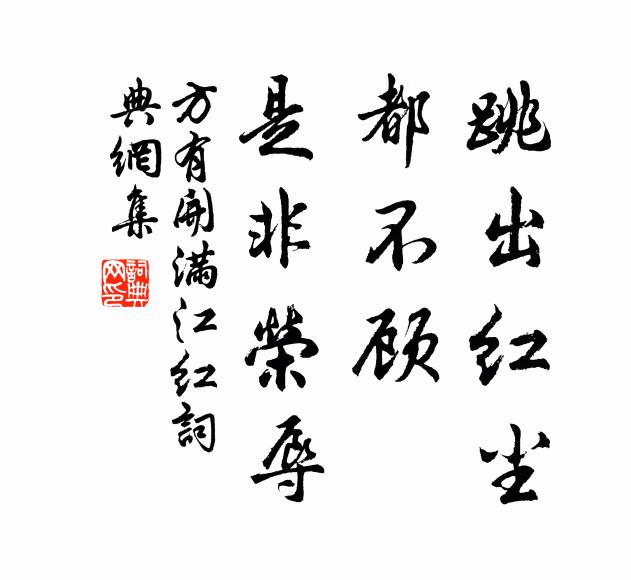 跳出红尘
都不顾
是非荣辱
方有開满江红詞
典網集
詞典
网印